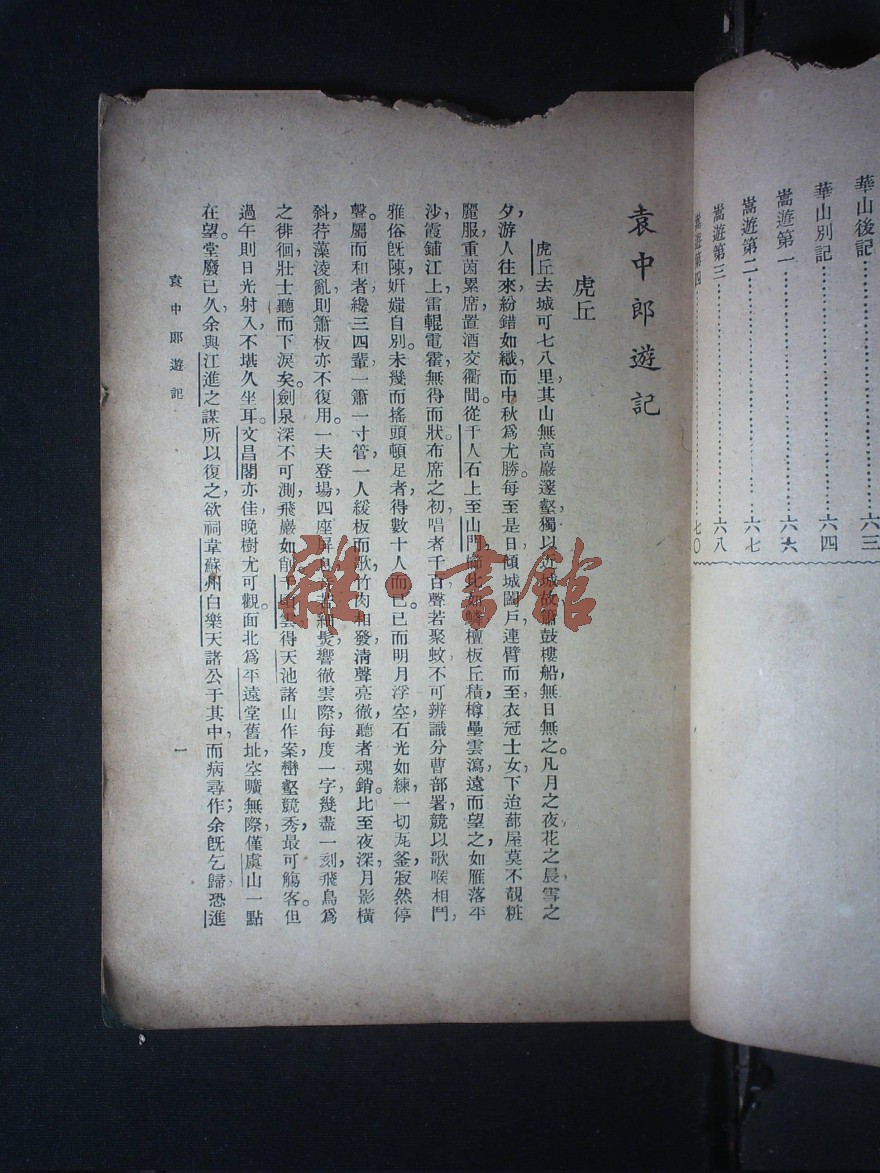 華山後記……………………六三
華山別記……………………六四
嵩遊第一……………………六六
嵩遊第二……………………六七
嵩遊第三……………………六八
嵩遊第四……………………七〇
袁中郎遊記
虎丘
虎丘去城可七八里,其山無高巖邃壑,獨以近城故,簫鼓樓船,無日無之。凡月之夜,花之晨,雪之
夕,游人往來,紛錯如織,而中秋爲尤勝。每至是日,傾城闔戶,連臂而至,衣冠士女,下迨蔀屋,莫不靚粧
麗服,重茵累席,置酒交衢間。從千人石上至山門,櫛比如鱗,檀板丘積,樽罍雲瀉,遠而望之,如雁落平
沙,霞鋪江上,雷輥電霍,無得而狀。布席之初,唱者千百,聲若聚蚊,不可辨識。分曹部署,競以歌喉相鬥,
雅俗旣陳,姸媸自別。未幾而搖頭頓足者,得數十人而已。已而明月浮空,石光如練,一切瓦釜,寂然停
聲。屬而和者,纔三四輩,一簫,一寸管,一人緩板而歌,竹肉相發,淸聲亮徹,聽者魂銷。比至夜深,月影橫
斜,荇藻淩亂,則簫板亦不復用。一夫登場,四座屏息,音若細髮,響徹雲際,每度一字,幾盡一刻,飛鳥爲
之徘徊,壯士聽而下淚矣。劍泉深不可測,飛巖如削。千頃雲得天池諸山作案,巒壑競秀,最可觴客。但
過午則日光射入,不堪久坐耳。文昌閣亦佳,晚樹尤可觀。面北爲平遠堂舊址,空曠無際,僅虞山一點
在望。堂廢已久,余與江進之謀所以復之,欲祠韋蘇州白樂天諸公于其中,而病尋作;余旣乞歸,恐進
袁中郎遊記
一
雜·書館